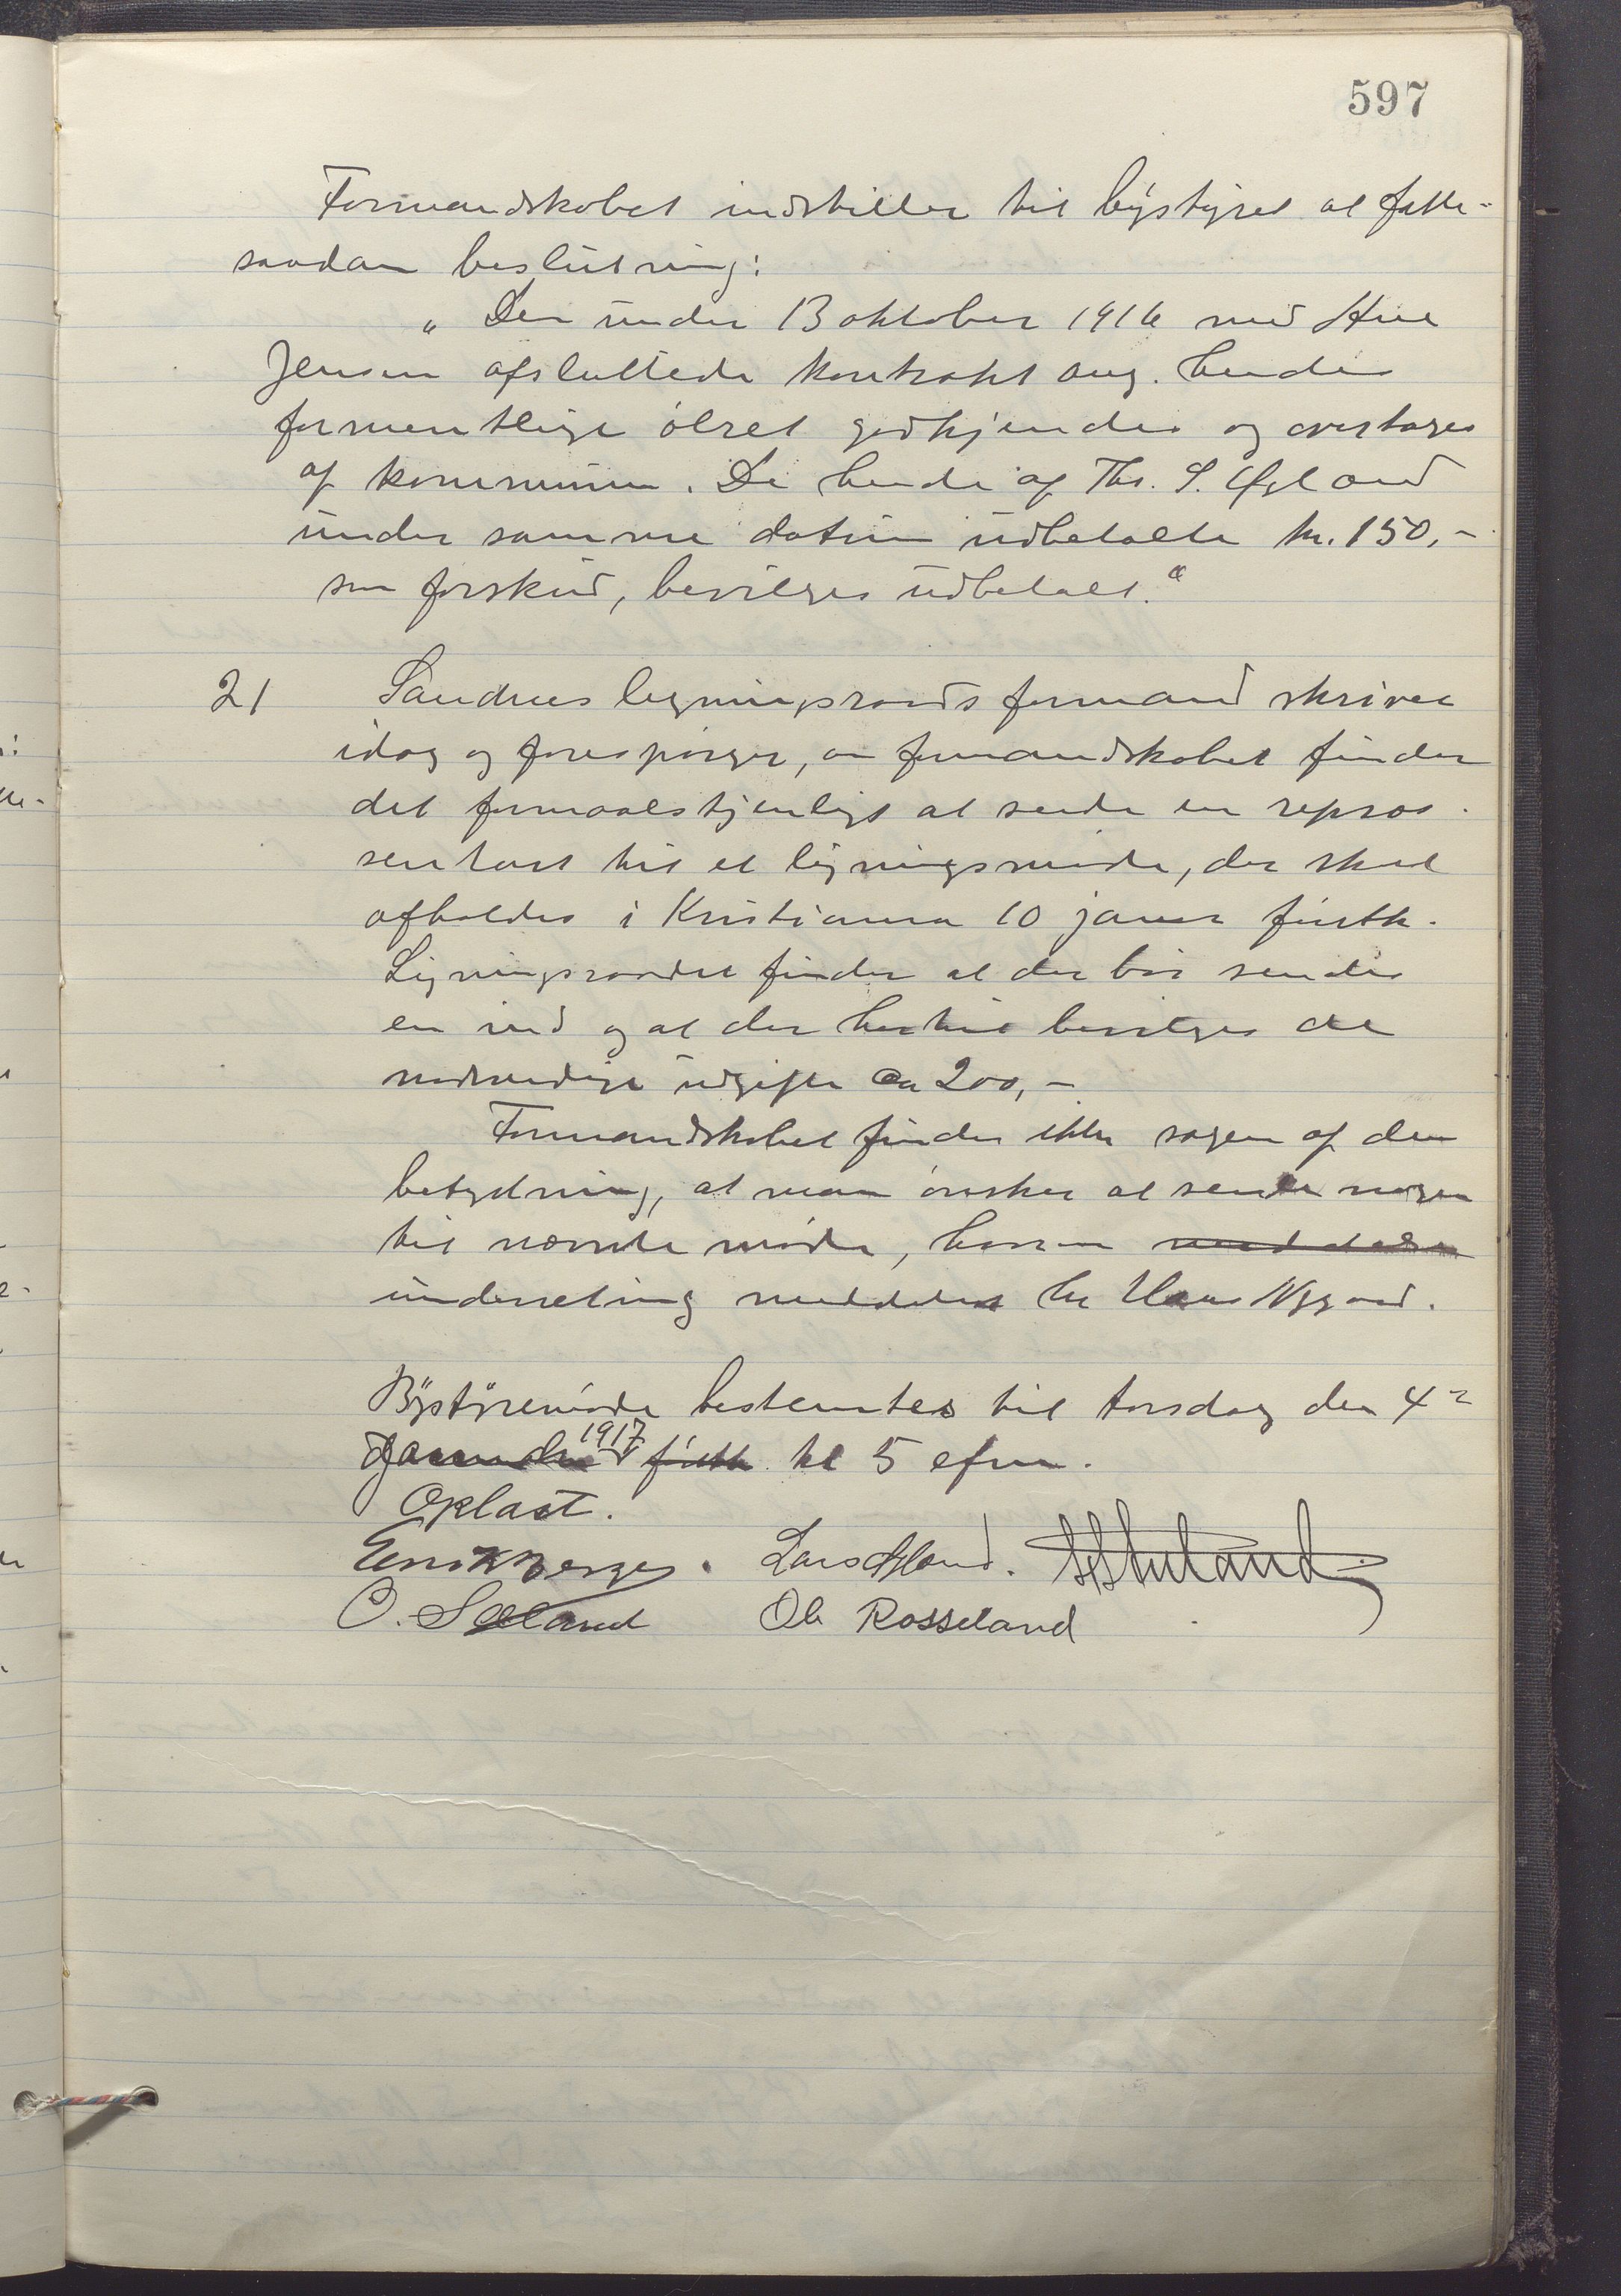 597
Formandskabet indstiller til bystyret at fatte
saadan beslutning:
"Den under 13 oktober 1916 med Hne
Jensen afsluttede kontrakt ang. hendes
formentlige ølret godkjendes og overtages
af kommunen. De hende af Ths. S. Øgland
under samme datum udbetalte kr. 150,-
som forskud, bevilges udbetalt."
21 Sandnes ligningsraads formand skriver
idag og forespørger, om formandskabet finder
det formaalstjenligt at sende en repræ-
sentant til et ligningsmøde, der skal
afholdes i Kristiania 10 januar førstk.
Ligningsraadet finder at der bør sendes
en ind og at der hertil bevilges de
nødvendige udgifter ca 200,-
Formandskabet finder ikke sagen af den
betydning, at man ønsker at sende nogen
til nævnte møde, hvorom meddeles
underretning meddeles hr Hans Nygaard.
Bystyremøde bestemtes til torsdag den 4de
januar 1917 førstk. kl 5 efm.
Oplæst.
Lars Øgland.
O. Sæland Ole Rosseland